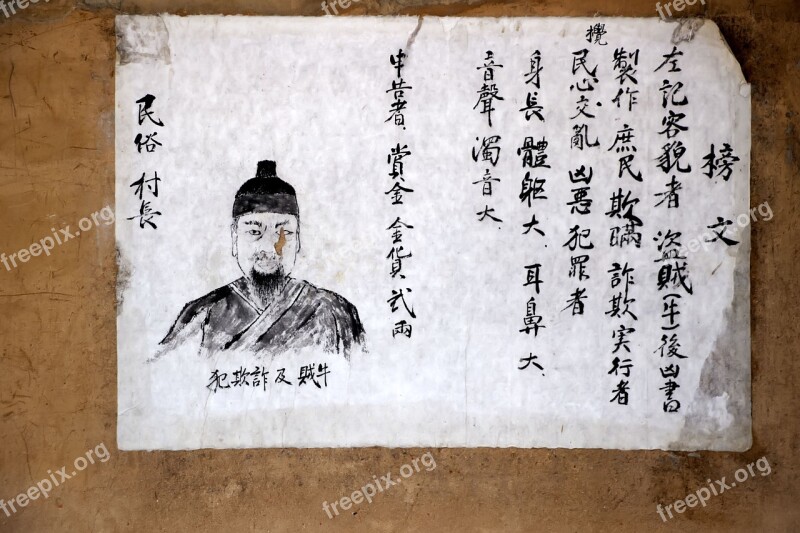 榜文
左記容貌者 盜賊(牛)後凶書
製作 庶民 欺瞞 詐欺実行者
攪
民心交乱 凶惡犯罪者
身長 體軀大. 耳鼻大.
音聲 濁音大.
申告者. 賞金 金貨 弐兩
牛賊及詐欺犯
民俗村長
freepix.org
freepix.org
freepix.org
freepix.org
freepix.org
freepix.org
freepix.org
freepix.org